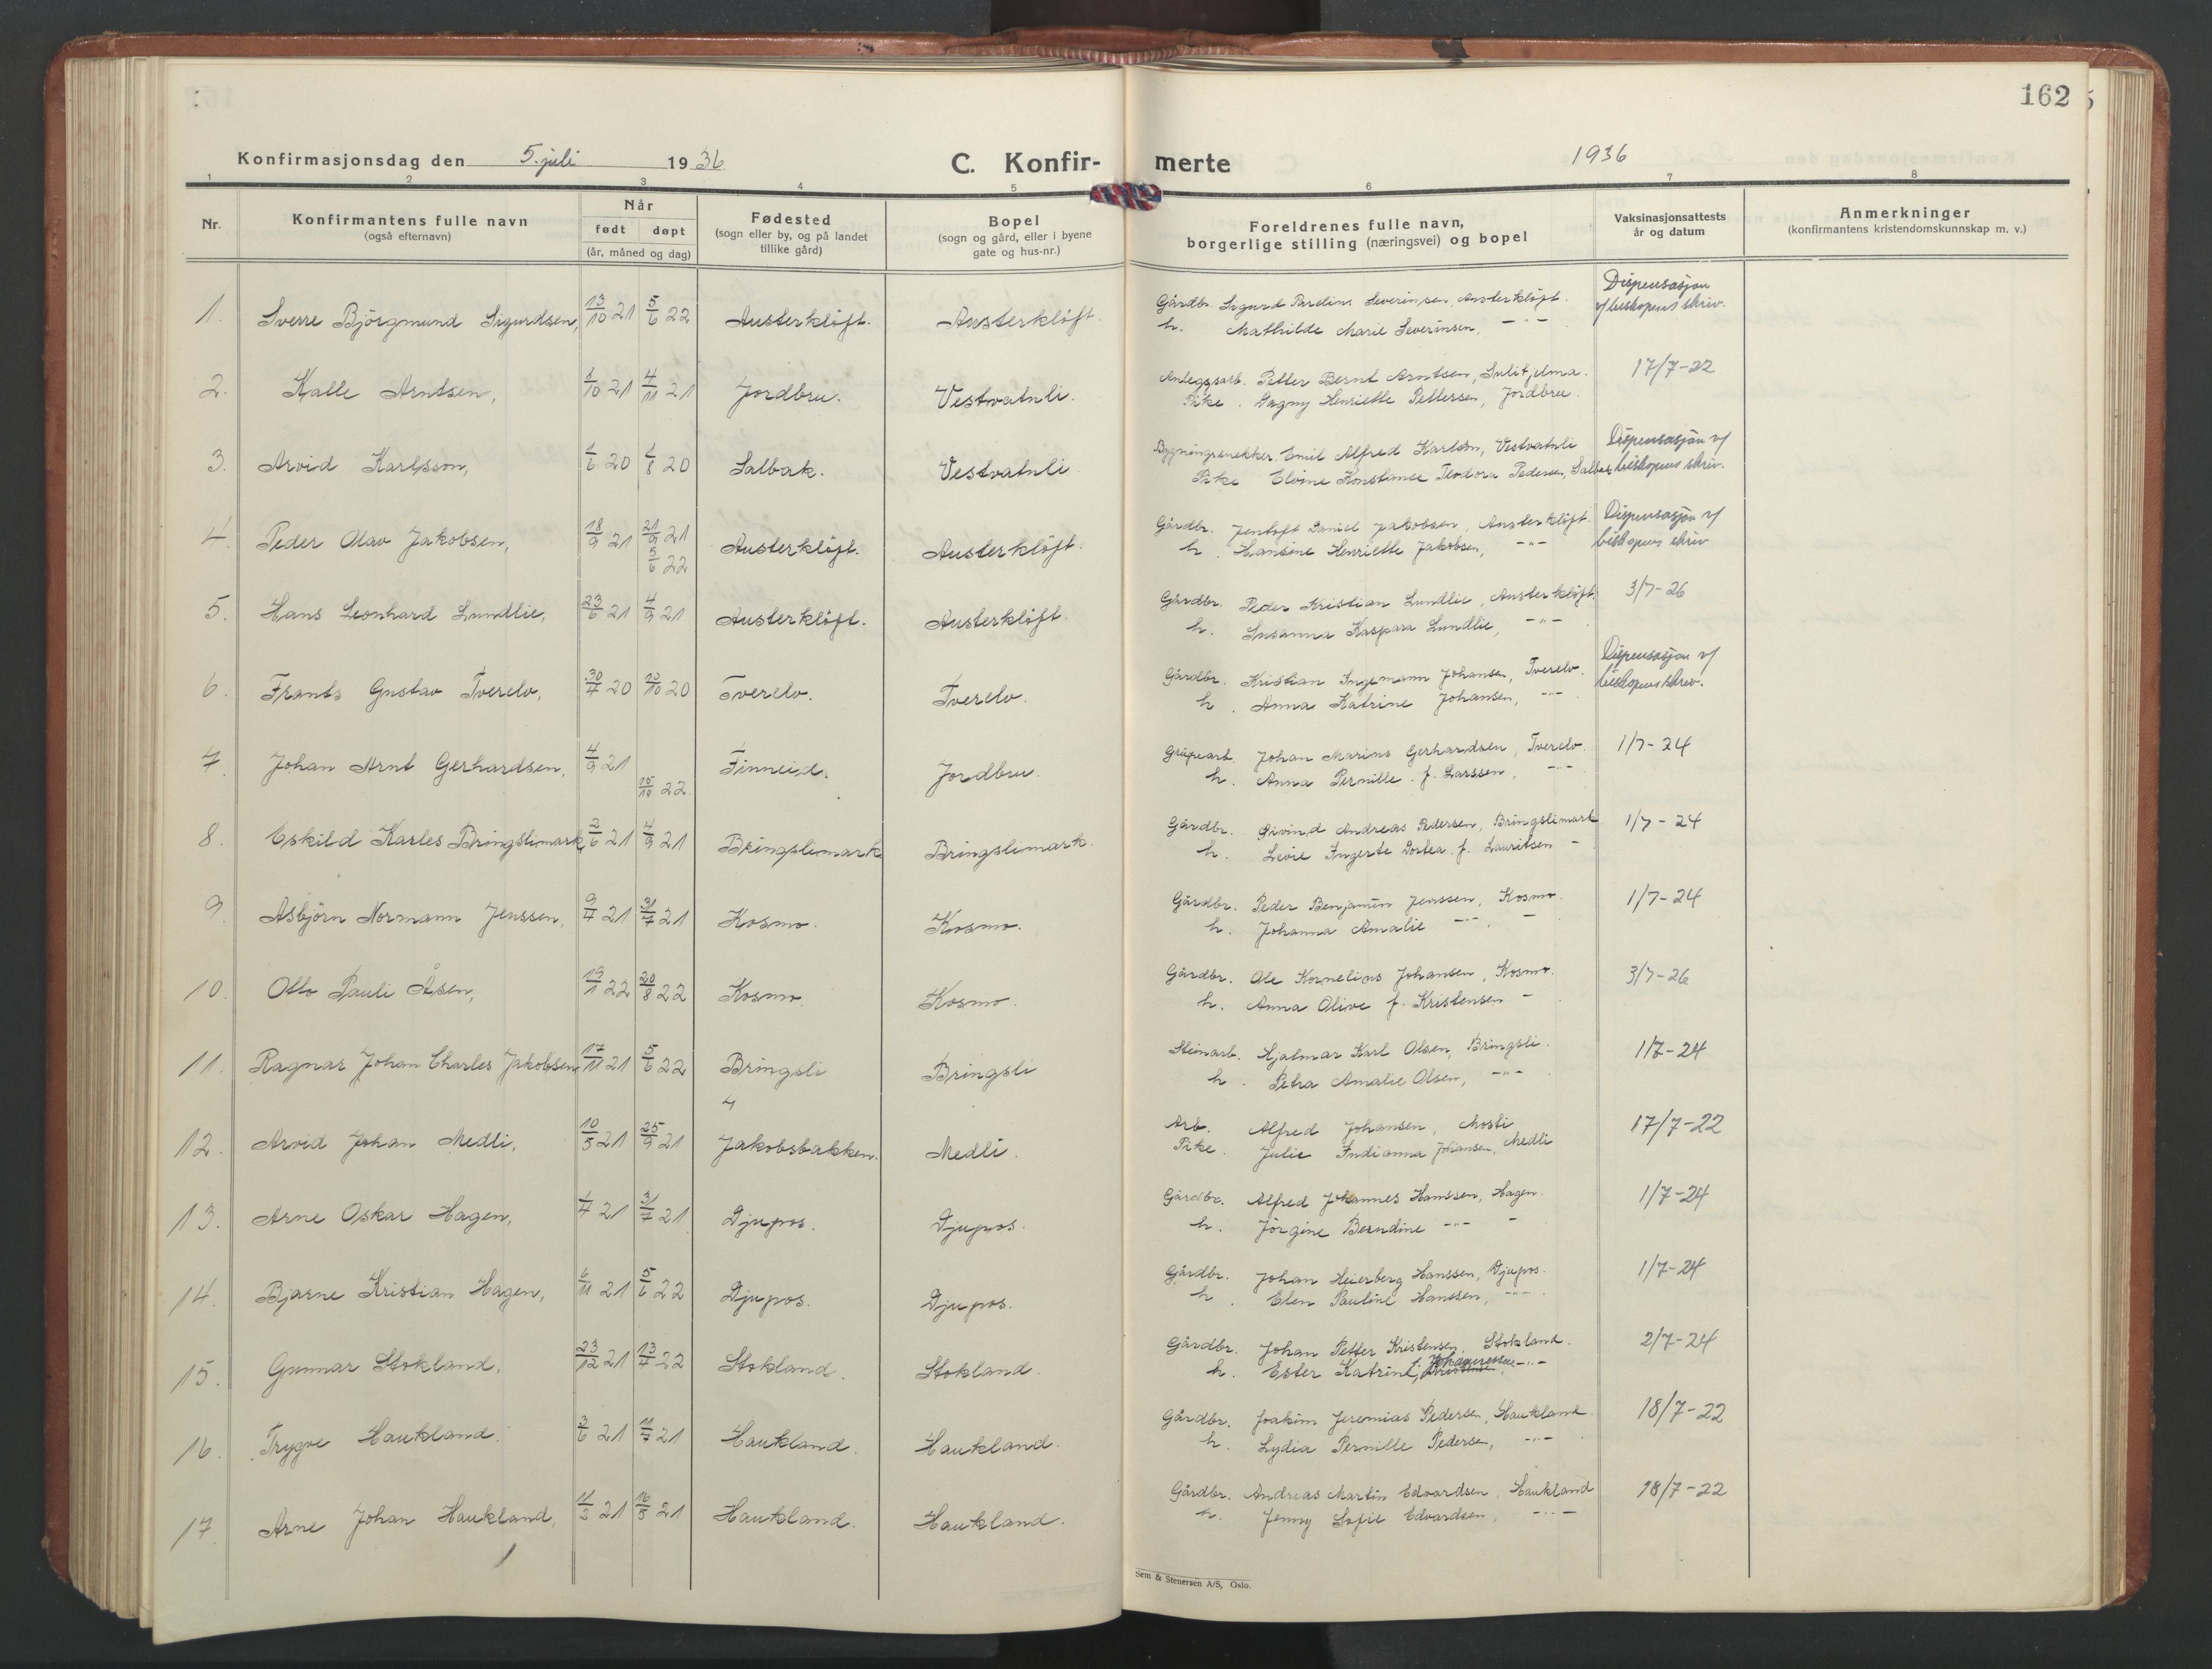 162
Konfirmasjonsdag den 5. juli 1936. C. Konfirmerte 1936
1 2 3 4 5 6 7 8
Nr. Konfirmantens fulle navn (også efternavn) Når født døpt (år, måned og dag) Fødested (sogn eller by, og på landet tillike gård) Bopel (sogn og gård, eller i byene gate og hus-nr.) Foreldrenes fulle navn, borgerlige stilling (næringsvei) og bopel Vaksinasjonsattests år og datum Anmerkninger (konfirmantens kristendomskunnskap m. v.)
1. Sverre Björgmund Sigurdsen, 13/10 21 5/6 22 Austerkløft. Austerkløft. Gårdbr. Sigurd Severinsen, Austerkløft. Dispensasjon
h. Mathilde Marie Severinsen, -"- v/ biskopens skriv.
2. Kalle Arntsen, 8/10 21 4/11 21 Jordbru. Vestvatnli. Anlegsarb. Petter Bernt Arntsen, Sulitjelma. 17/7-22
Pike. Dagny Henriette Pettersen, Jordbru.
3. Arvid Karlsson, 1/6 20 1/8 20 Salbak. Vestvatnli Bygningssnekker Emil Alfred Karlson, Vestvatnli Dispensasjon v/
Pike Elvine Konstanse Teodora Pedersen, Salbak biskopens skriv.
4. Peder Olav Jakobsen, 18/9 21 21/9 21 Austerkløft. Austerkløft. Gårdbr. Jentoft Daniel Jakobsen, Austerkløft. Dispensasjon v/
5/6 22 h. Hansine Henriette Jakobsen, -"- biskopens skriv
5. Hans Leonhard Lundlie, 23/6 21 4/9 21 Austerkløft. Austerkløft. Gårdbr. Peder Kristian Lundlie, Austerkløft. 3/7-26
h. Susanna Kaspara Lundlie, -"-
6. Frants Gustav Tverelv, 30/7 20 10/10 20 Tverelv. Tverelv. Gårdbr. Kristian Ingemann Johansen, Tverelv. Dispensasjon v/
h. Anna Katrine Johansen, -"- biskopens skriv.
7. Johan Arnt Gerhardsen, 4/9 21 15/10 22. Finneid. Jordbru. Grupearb. Johan Marius Gerhardsen, Tverelv. 1/7-24
h. Anna Pernille f. Larssen, -"-
8. Eskild Karles Bringslimark, 2/6 21 4/9 21 Bringslimark Bringslimark. Gårdbr. Eivind Andreas Pedersen, Bringslimark 1/7-24
h. Levie Ingerte Dortea f. Lauritsen -
9. Asbjörn Normann Jenssen, 9/4 21 31/7 21 Kosmo. Kosmo. Gårdbr. Peder Benjamin Jenssen, Kosmo. 1/7-24
h. Johanna Amalie -"-, -
10. Otto Pauli Åsen, 19/1 22 20/8 22 Kosmo. Kosmo. Gårdbr. Ole Kornelius Johansen, Kosmo. 3/7-26
h. Anna Olive f. Kristensen -
11. Ragnar Johan Charles Jakobsen 17/11 21 5/6 22 Bringsli Bringsli Steinarb. Hjalmar Karl Olsen, Bringsli. 1/7-24
h. Petra Amalie Olsen, -"-
12. Arvid Johan Medli, 10/5 21 25/9 21 Jakobsbakken. Medli. Arb. Alfred Johansen, Mosti 17/7-22
Pike. Julie Indianna Johansen, Medli
13. Arne Oskar Hagen, 1/7 21 31/7 21 Djupos. Djupos. Gårdbr. Alfred Johannes Hanssen, Hagen. 1/7-24
h. Jörgine Berndine -"- -
14. Bjarne Kristian Hagen, 6/11 21 5/6 22 Djupos. Djupos. Gårdbr. Johan Heierberg Hanssen, Djupos. 1/7-24
h. Elen Pauline Hanssen, -"-
15. Gunnar Stokland, 23/12 21 13/4 22 Stokland. Stokland. Gårdbr. Johan Petter Kristensen, Stokland. 2/7-24
h. Ester Katrine, f. Johannessen -"-
16. Trygve Haukland. 3/6 21 11/7 21 Haukland. Haukland. Gårdbr. Joakim Jeremias Pedersen, Haukland. 18/7-22
h. Lydia Pernille Pedersen, -"-
17. Arne Johan Haukland, 11/2 21 16/5 21 Haukland. Haukland. Gårdbr. Andreas Martin Edvardsen, Haukland 18/7-22
h. Jenny Sofie Edvardsen, -"-
Sem & Stenersen A/S, Oslo.